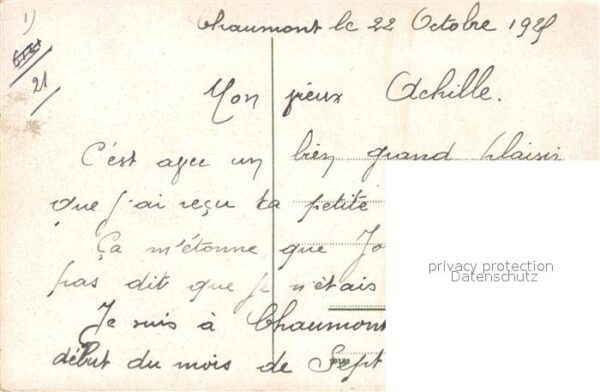 1)
21
Chaumont le 22 Octobre 1925
Mon vieux Achille.
C'est avec un bien grand plaisir
que j'ai reçu ta petite
Ça m'étonne que Jo
pas dit que je n'étais
Je suis à Chaumont
début du mois de Sept
privacy protection
Datenschutz